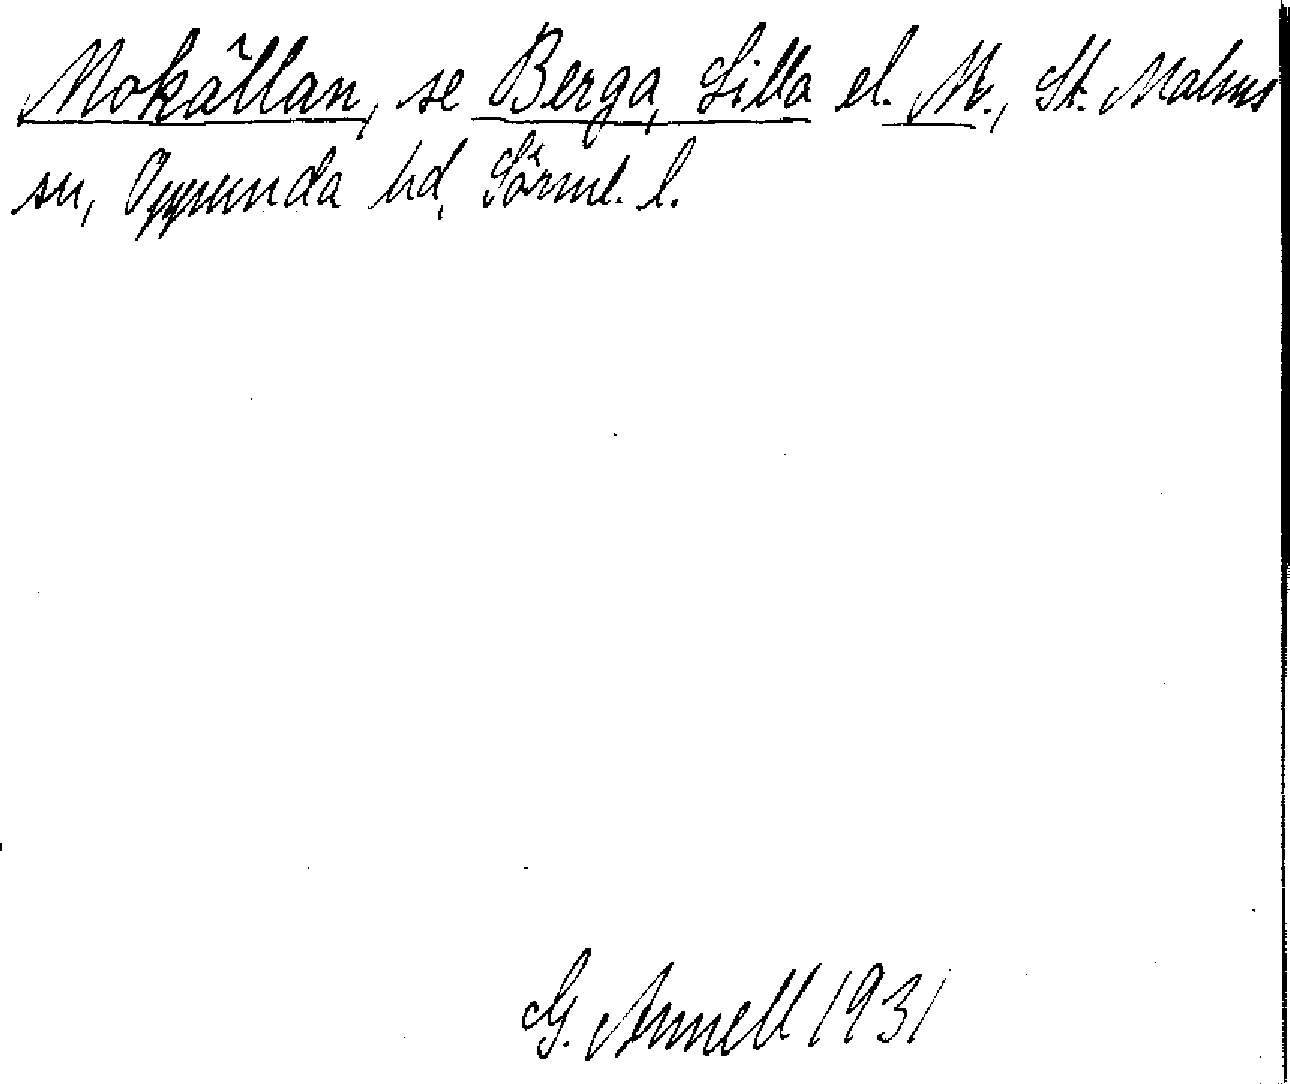 Mokällan, se Berga, Lilla el. M., St. Malms
sn, Oppunda hd, Sörml. l.
G. Annell 1931